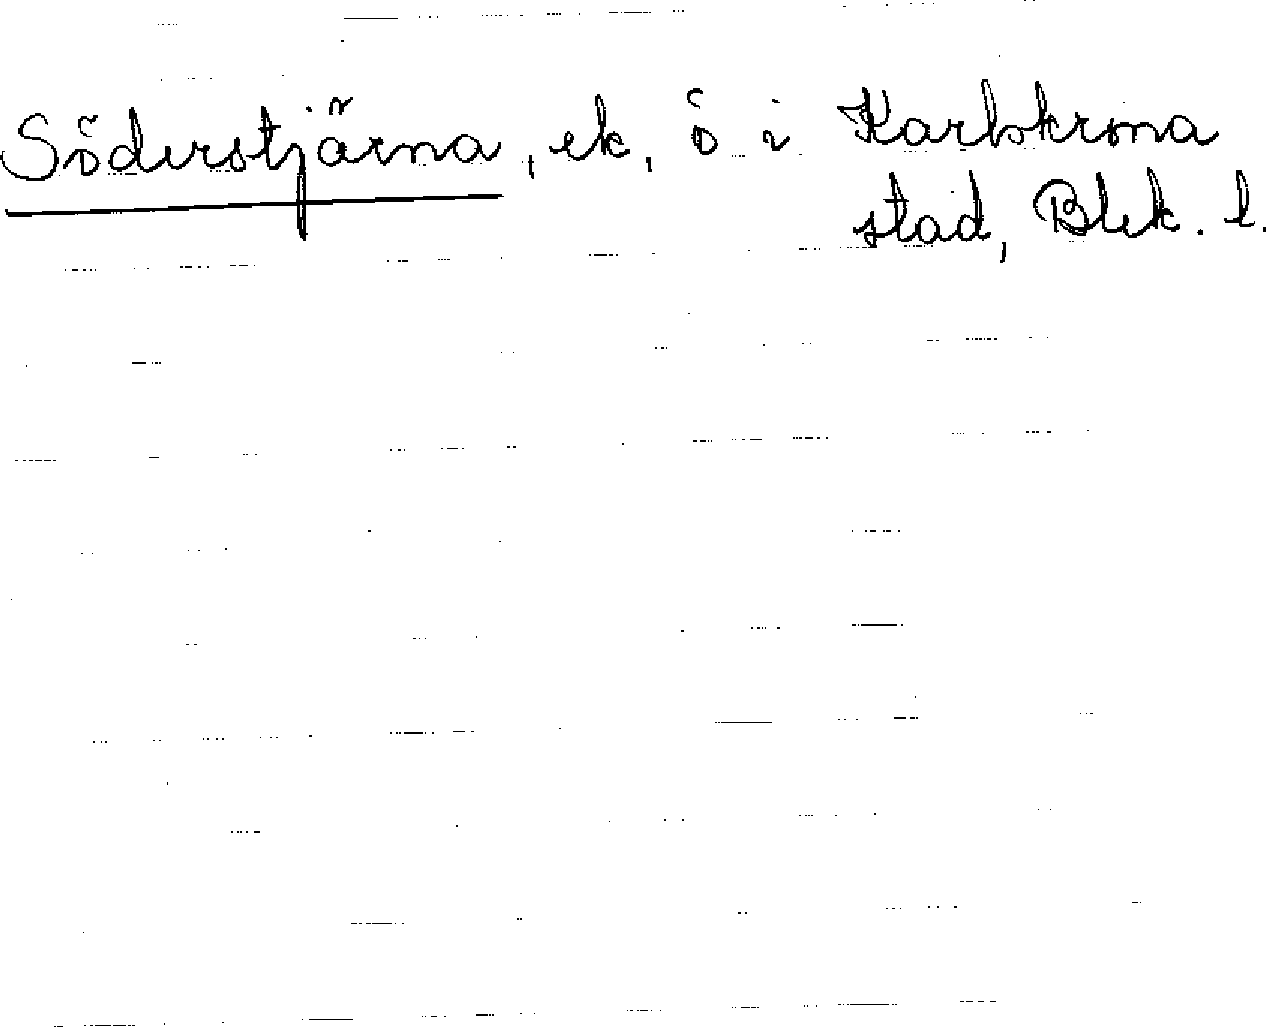 Söderstjärna, ek, ö i Karlskrona
stad, Blek. l.